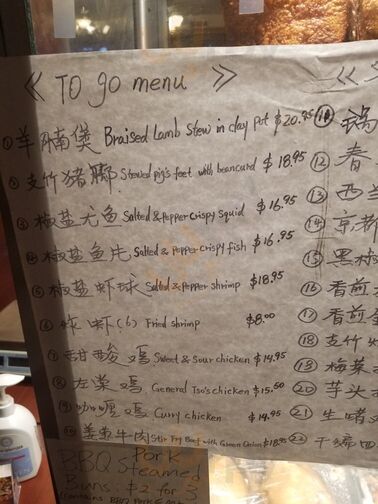 《 TO go menu 》
① 羊腩煲 Braised Lamb Stew in clay pot $20.95
② 支竹猪脚 Stewed pig's feet with beancurd $18.95
③ 椒盐尤鱼 Salted & pepper crispy squid $16.95
④ 椒盐鱼片 Salted & pepper crispy fish $16.95
⑤ 椒盐虾球 Salted & pepper shrimp $18.95
⑥ 炸虾(6) Fried shrimp $8.00
⑦ 甜酸鸡 Sweet & Sour chicken $14.95
⑧ 左棠鸡 General Tso's chicken $15.50
⑨ 咖喱鸡 Curry chicken $14.95
⑩ 姜葱牛肉 Stir Fry Beef with Green Onion $18.95
《
⑪ 锅
⑫ 春
⑬ 西兰
⑭ 京都
⑮ 黑椒
⑯ 香煎
⑰ 香煎
⑱ 支竹
⑲ 梅菜
⑳ 芋头
㉑ 生啫
㉒ 干
BBQ Pork
Steamed
Buns $2 for 3